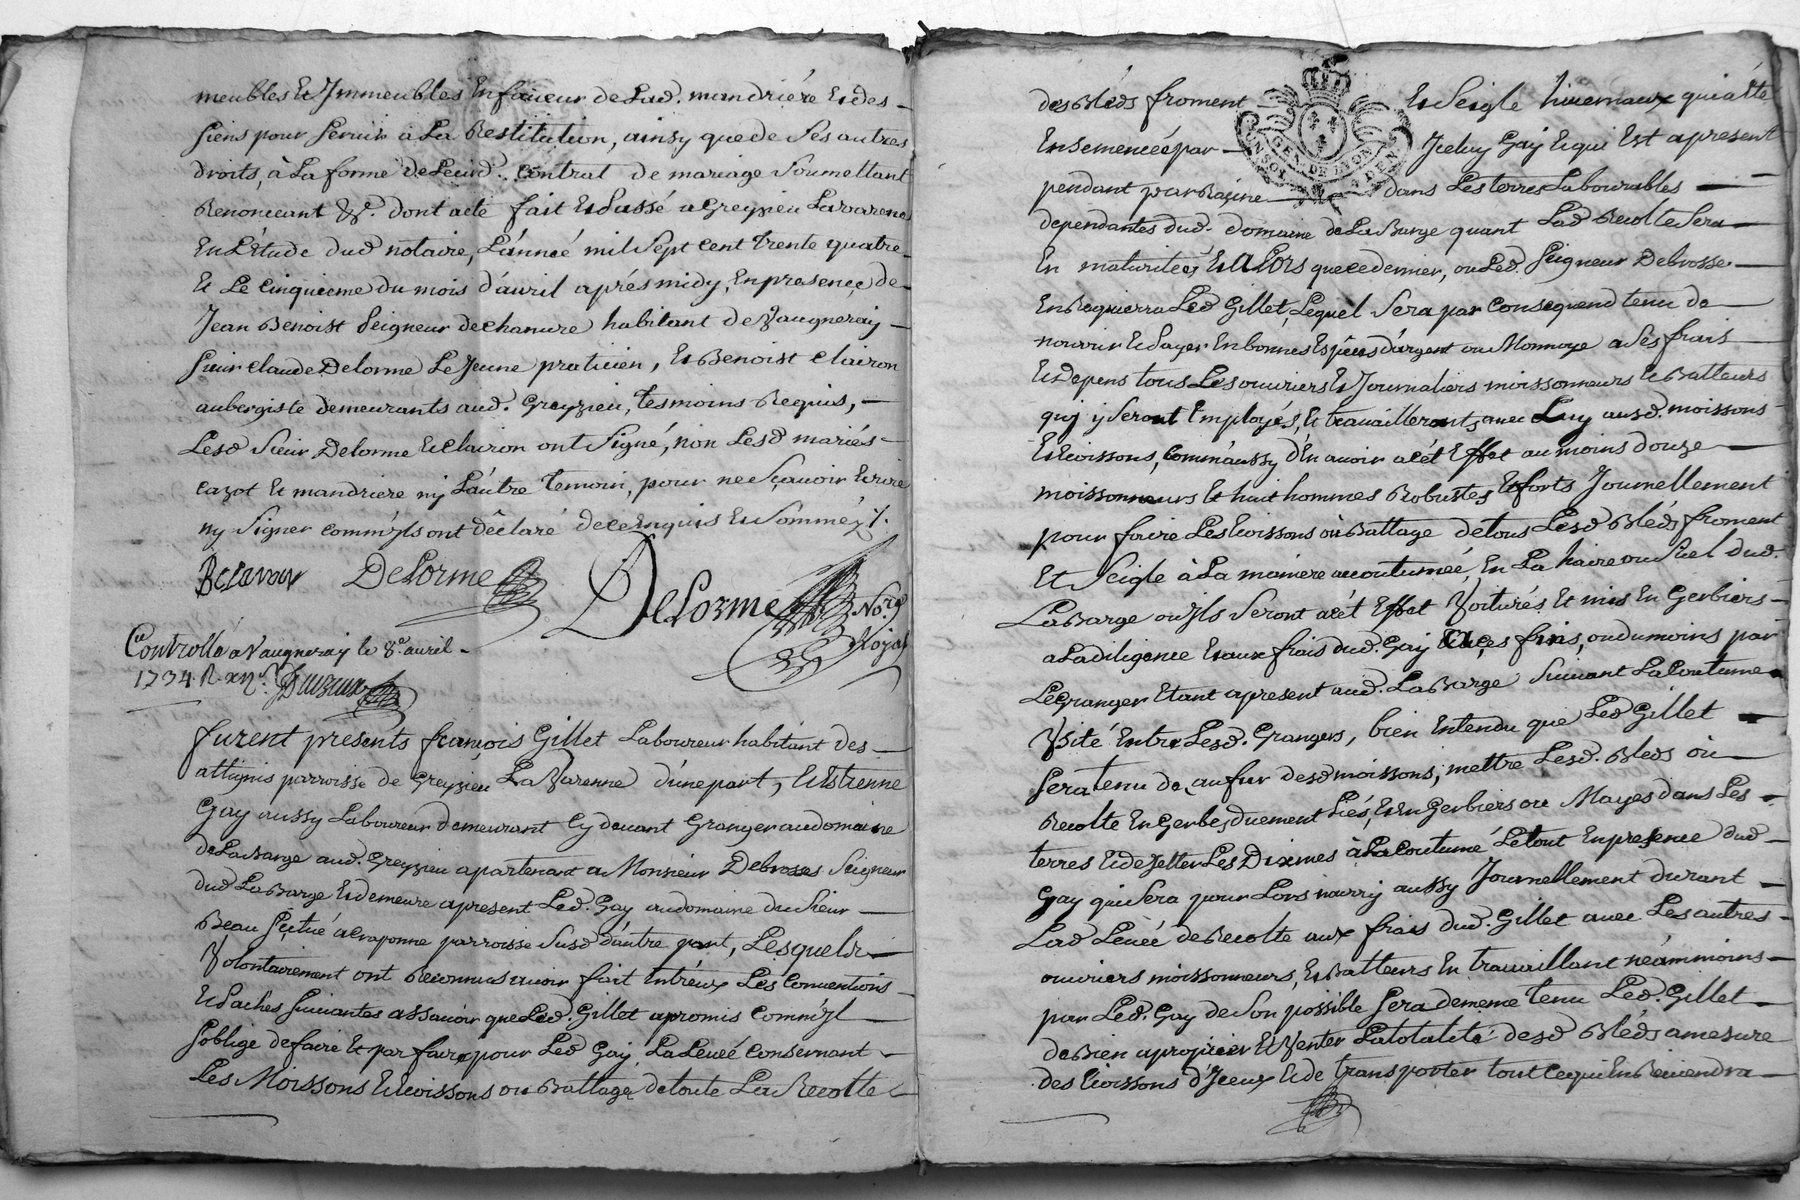 meubles et Jmmeubles En faueur de Lad. mandriére et des
siens pour seruir à La Restitution, ainsy que de ses autres
droits, à La forme de Leurd. contrat de mariage soumettant
Renonceant &c. dont acte fait et Passé a Greyzieu Lavarenne
En L'étude dud notaire, L'année mil sept cent trente quatre
et Le cinquieme du mois d'auril aprés midy, En presence de
Jean Benoist seigneur de chanure habitant de Vaugneray
sieur claude Delorme Le Jeune praticien, et Benoist clairon
aubergiste demeurants aud. Greyzieu, tesmoins Requis,
Lesd sieur Delorme et clairon ont signé, non Lesd mariés
cazot et mandriere ny L'autre temoin, pour ne sçauoir Ecrire
ny signer comm'jls ont déclaré de ce Enquis et sommé&./.
DeLorme
DeLorme Nore
Royal
Controllé à Vaugneray le 8e auril
1734
furent presents françois Gillet Laboureur habitant des
attignis parroisse de Greyzieu La Varenne d'une part, et Estienne
Gay aussy Laboureur demeurant Cy deuant Granger au domaine
de La Barge aud. Greyzieu apartenant a Monsieur Debrosses seigneur
dud La Barge et demeure apresent Led. Gay au domaine du sieur
Beau scitué à Craponne parroisse susd d'autre part, Lesquels
Volontairement ont Reconnus auoir fait Entréux Les Conuentions
et Paches suiuantes assauoir que Led. Gillet a promis comm'jl
s'oblige de faire et parfaire pour Led Gay La Leueé Consernant
Les Moissons et Ecoissons ou Battage de toute La Recolte
des Bléds froment et seigle hiuernaux qui a été
Ensemenceé par Jceluy Gay et qui Est apresent
pendant par Racine dans Les terres Labourables
dependantes dud. domaine de La Barge quant Lad Recolte sera
En maturiteé, et alors que ce dernier, ou Led. seigneur Debrosse
En Requierra Led Gillet, Lequel sera par consequend tenu de
nourrir et Payer En bonnes Espéces d'argent ou Monnoye a ses frais
et depens tous Les ouuriers et Journaliers moissonneurs et Batteurs
quj y seront Employés, et trauailleronts auec Luy ausd. moissons
et Ecoissons, comm'aussy d'En auoir a cét Effet au moins douze
moissonneurs et huit hommes Robustes et forts Journellement
pour faire Les Ecoissons où Battage de tous Lesd Bléds froment
Et seigle à La maniere accoutumeé, En La haire ou suel dud.
La Barge ou jls seront a cét Effet Voiturés et mis En Gerbiers
a La diligence et aux frais dud. Gay a ces fins, ou du moins par
Le Granger Etant apresent aud. La Barge suiuant La Coutume
Vsité Entre Lesd. Grangers, bien Entendu que Led Gillet
sera tenu de, au fur desd moissons, mettre Lesd. Bleds où
Recolte En Gerbes duement Liés, et En Gerbiers ou Mayes dans Les
terres et de Jetter Les Dixmes à La Coutume Le tout En presence dud
Gay qui sera pour Lors nourry aussy Journellement durant
Lad Leueé de Recolte aux frais dud. Gillet auec Les autres
ouuriers moissonneurs, et Batteurs En trauaillant néammoins
par Led. Gay de son possible sera de meme tenu Led. Gillet
de Bien aproprier et Venter La totalité desd Bléds a mesure
des Ecoissons d'Jceux et de transporter tout ce qui En Reuiendra